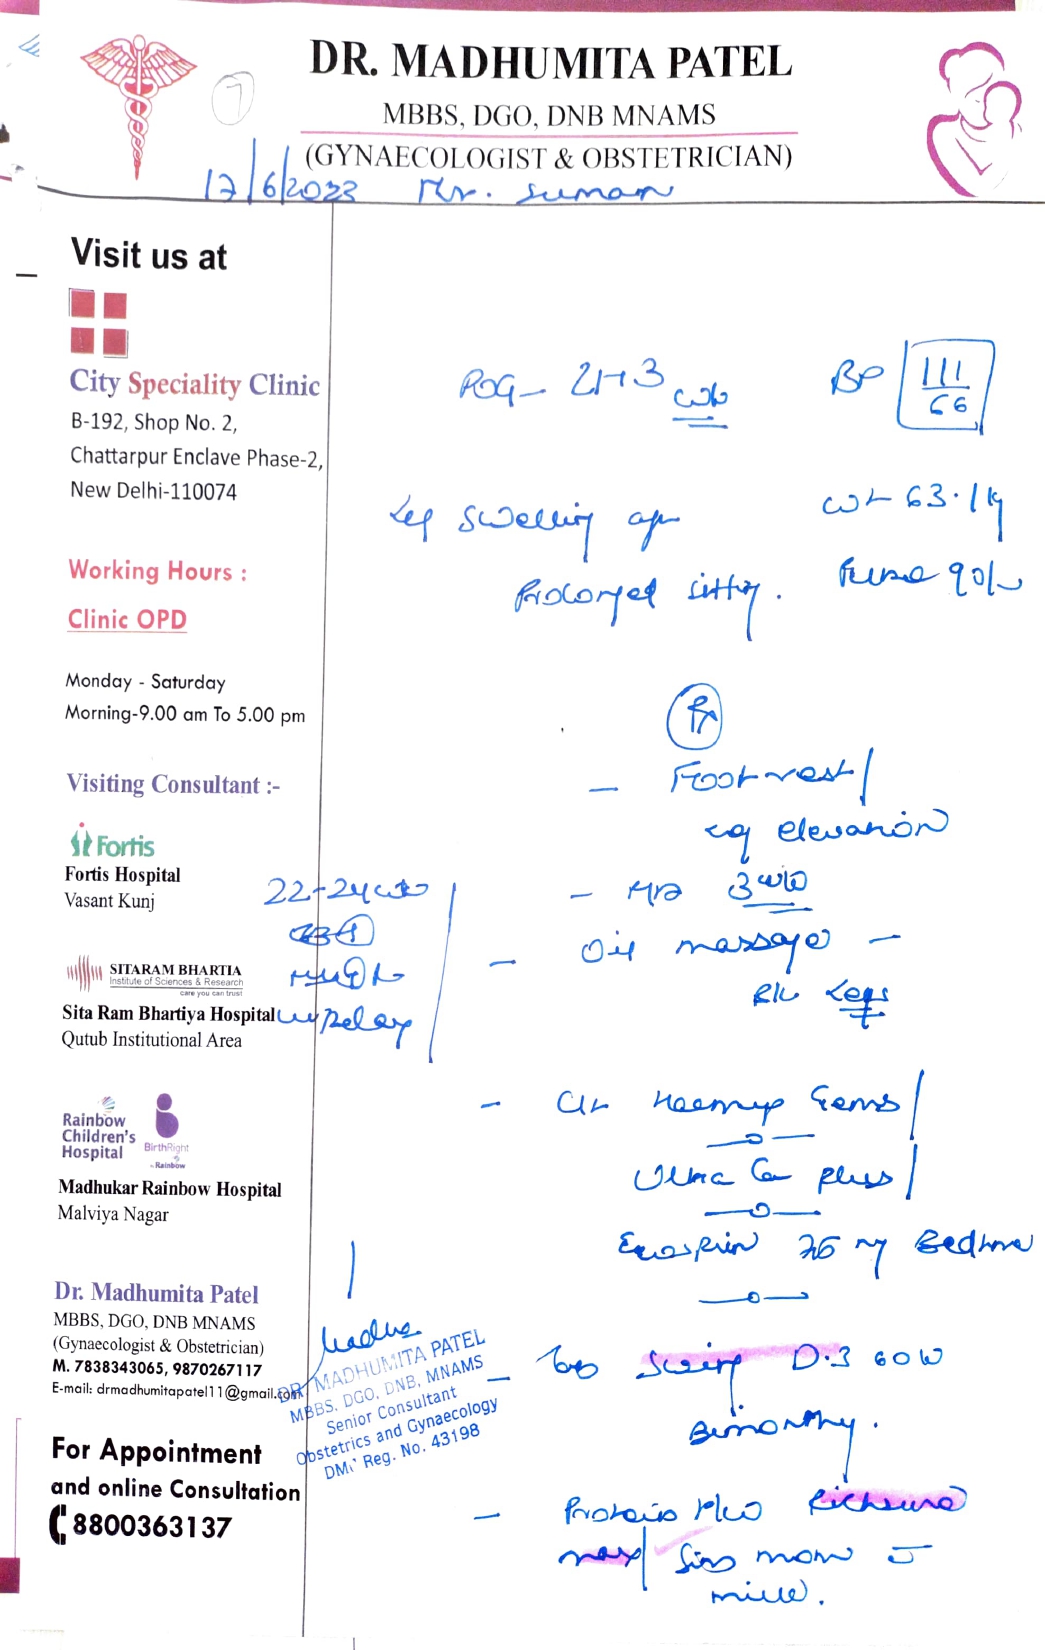 DR. MADHUMITA PATEL
MBBS, DGO, DNB MNAMS
(GYNAECOLOGIST & OBSTETRICIAN)
7
17/6/2023 Mr. Suman
Visit us at
City Speciality Clinic
B-192, Shop No. 2,
Chattarpur Enclave Phase-2,
New Delhi-110074
Working Hours :
Clinic OPD
Monday - Saturday
Morning-9.00 am To 5.00 pm
Visiting Consultant :-
Fortis
Fortis Hospital
Vasant Kunj
SITARAM BHARTIA
Institute of Sciences & Research
care you can trust
Sita Ram Bhartiya Hospital
Qutub Institutional Area
Rainbow
Children's
Hospital
BirthRight
by Rainbow
Madhukar Rainbow Hospital
Malviya Nagar
Dr. Madhumita Patel
MBBS, DGO, DNB MNAMS
(Gynaecologist & Obstetrician)
M. 7838343065, 9870267117
E-mail: drmadhumitapatel11@gmail.com
For Appointment
and online Consultation
8800363137
POG - 21+3 wk
BP 111/66
Leg swelling
Prolonged sitting.
Wt 63.1 kg
Pulse 90/
Rx
- Foot rest/
leg elevation
- 3 wk
- Oil massage -
B/L Legs
22-24 wk
- Haemup Gems/
Ultra Ca plus/
Ecosprin 75 mg Bedtime
- D3 60K
Bimonthly.
- Protein
max/
milk.
DR. MADHUMITA PATEL
MBBS, DGO, DNB, MNAMS
Senior Consultant
Obstetrics and Gynaecology
DMC Reg. No. 43198